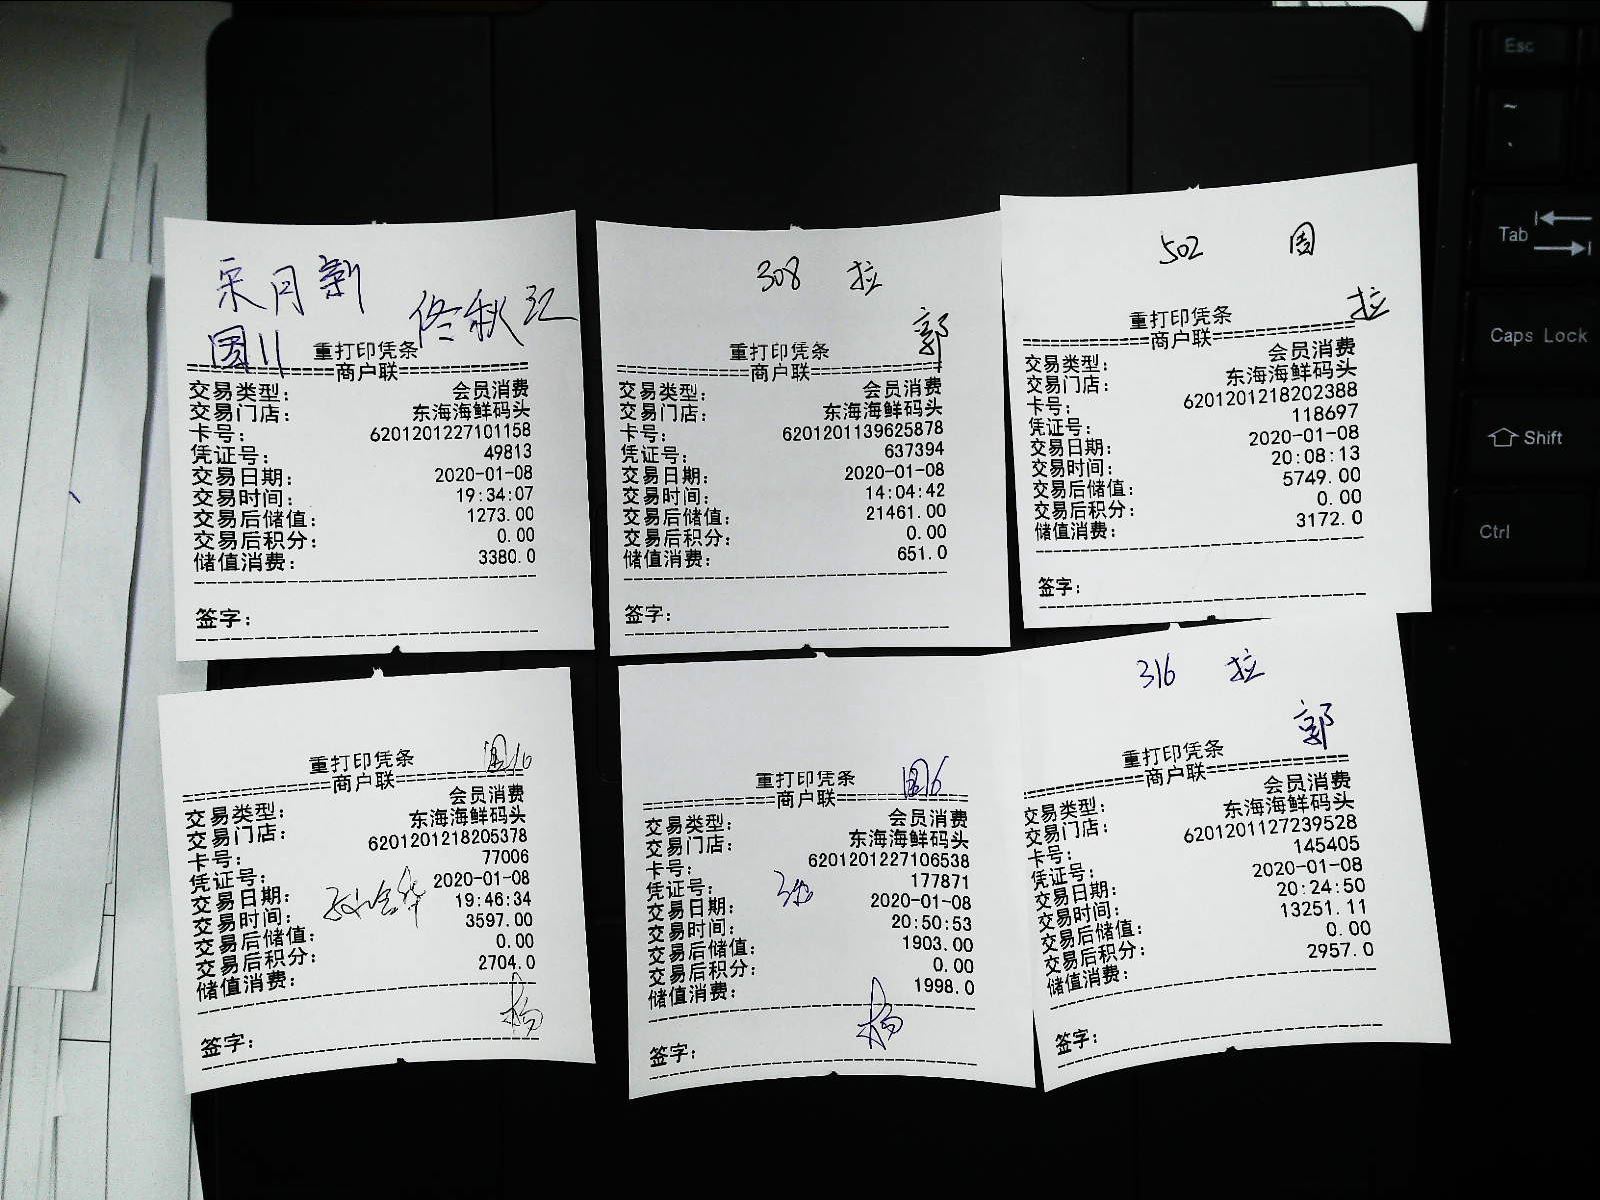 采月新
佟秋红
圆11
重打印凭条
==========商户联==========
交易类型: 会员消费
交易门店: 东海海鲜码头
卡号: 6201201227101158
凭证号: 49813
交易日期: 2020-01-08
交易时间: 19:34:07
交易后储值: 1273.00
交易后积分: 0.00
储值消费: 3380.0
签字:
308 拉
郭
重打印凭条
==========商户联==========
交易类型: 会员消费
交易门店: 东海海鲜码头
卡号: 6201201139625878
凭证号: 637394
交易日期: 2020-01-08
交易时间: 14:04:42
交易后储值: 21461.00
交易后积分: 0.00
储值消费: 651.0
签字:
502 周
拉
重打印凭条
==========商户联==========
交易类型: 会员消费
交易门店: 东海海鲜码头
卡号: 6201201218202388
凭证号: 118697
交易日期: 2020-01-08
交易时间: 20:08:13
交易后储值: 5749.00
交易后积分: 0.00
储值消费: 3172.0
签字:
圆16
重打印凭条
==========商户联==========
交易类型: 会员消费
交易门店: 东海海鲜码头
卡号: 6201201218205378
凭证号: 77006
交易日期: 2020-01-08
交易时间: 19:46:34
交易后储值: 3597.00
交易后积分: 0.00
储值消费: 2704.0
杨
签字:
圆6
重打印凭条
==========商户联==========
交易类型: 会员消费
交易门店: 东海海鲜码头
卡号: 6201201227106538
凭证号: 177871
交易日期: 2020-01-08
交易时间: 20:50:53
交易后储值: 1903.00
交易后积分: 0.00
储值消费: 1998.0
杨
签字:
316 拉
郭
重打印凭条
==========商户联==========
交易类型: 会员消费
交易门店: 东海海鲜码头
卡号: 6201201127239528
凭证号: 145405
交易日期: 2020-01-08
交易时间: 20:24:50
交易后储值: 13251.11
交易后积分: 0.00
储值消费: 2957.0
签字:
Esc
~
Tab
Caps Lock
Shift
Ctrl